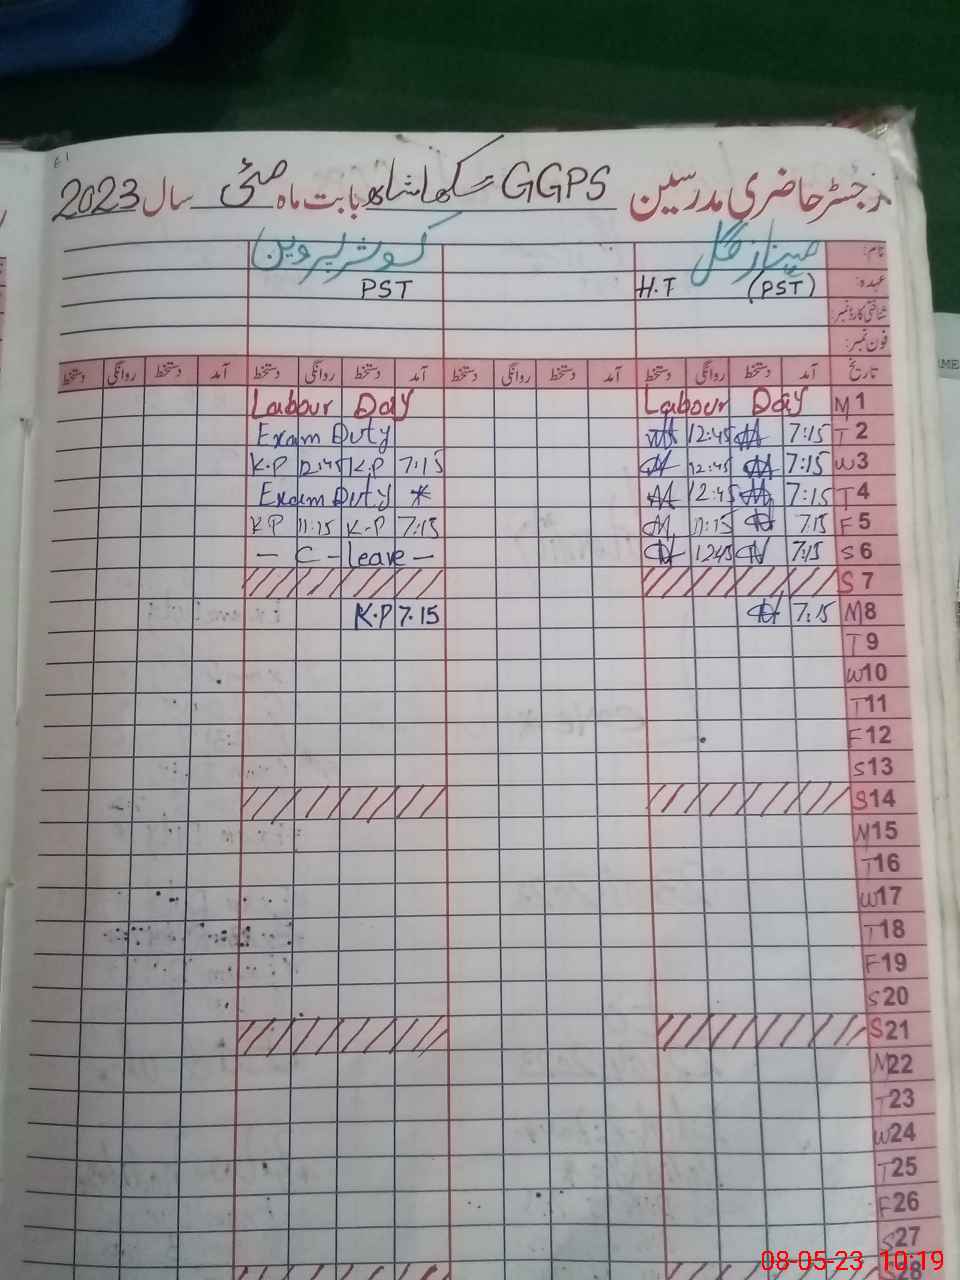 رجسٹر حاضری مدرسین GGPS سکھا شاہ بابت ماہ مئی سال 2023
نام: مہناز گل کوثر پروین
عہدہ: (PST) H.T PST
شناختی کارڈ نمبر:
فون نمبر:
تاریخ آمد دستخط روانگی دستخط آمد دستخط روانگی دستخط آمد دستخط روانگی دستخط آمد دستخط روانگی دستخط
M 1 Labour Day Labour Day
T 2 7:15 12:45 Exam Duty
W 3 7:15 12:45 7:15 K.P 12:45 K.P
T 4 7:15 12:45 Exam Duty *
F 5 7:15 11:15 7:15 K.P 11:15 K.P
S 6 7:15 12:45 – C – leave –
S 7
M 8 7:15 7.15 K.P
T 9
W 10
T 11
F 12
S 13
S 14
M 15
T 16
W 17
T 18
F 19
S 20
S 21
M 22
T 23
W 24
T 25
F 26
S 27
S 28
08-05-23 10:19